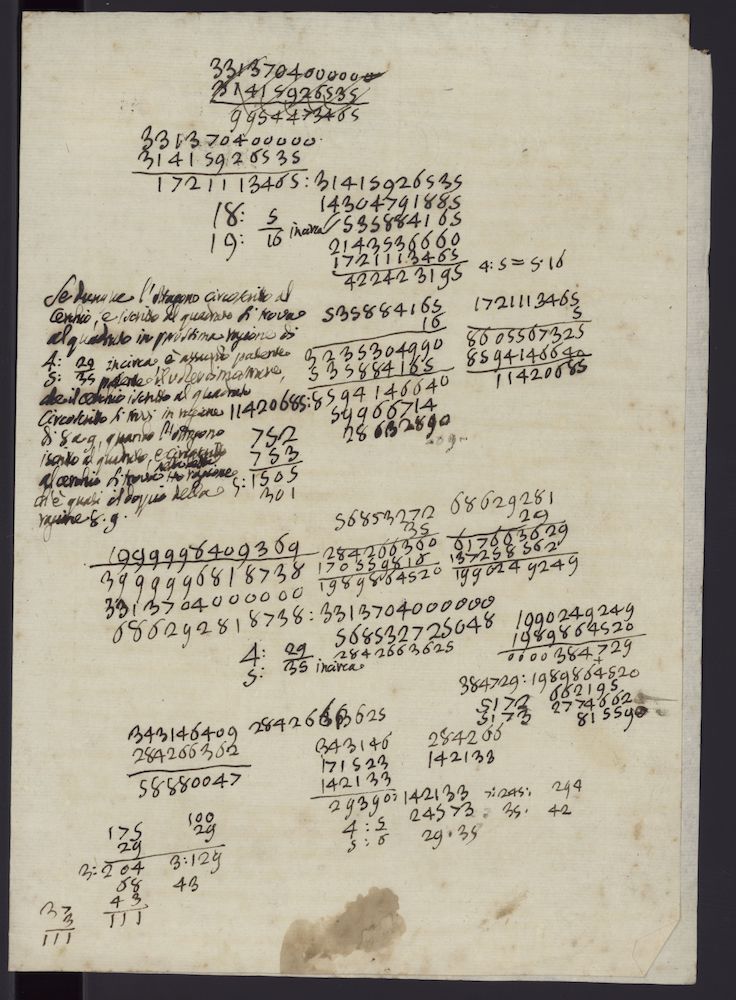 331370400000
314159265 35
9954473465
331370400000
314159265 35
17211134 65: 31415926535
14304791885
18: 5
19: 16 incirca 535884165
2143536660
1721113465
422423195
4: 5 = 5. 16
Se dunque l'ottagono circoscritto al
cerchio, e iscritto al quadrato si trova
al quadrato in prossima ragione di
4: 29 incirca è assurdo patente
5: 35
che il cerchio iscritto al quadrato
circoscritto si trovi in ragione
di 8 a 9, quando l'ottagono
iscritto al quadrato, e circoscritto
al cerchio si trova in ragione
ch'è quasi il doppio della
ragione 8. 9.
535884165
16
3235304990
535884165
11420685: 8594146640
59966714
28632890
1721113465
5
8605567325
8594146640
11420685
752
753
5: 1505
301
1999996409369
3999996818738
3313704000000
686292818738: 3313704000000
568532725048
2842663625
4: 29
5: 35 incirca
56853272
35
284266360
170559816
1989864520
68629281
29
617663629
137258562
1990249249
1990249249
1989864520
0000384729
384729: 1989864520
5172 662195
5173 2774662
815590
343146409
284266362
58880047
2842663625
343146
171523
142133
29390: 142133
24573
284266
142133
7: 245: 294
35. 42
4: 5
5: 6
29. 35
175
29
3: 204
68
43
111
100
29
3: 129
43
37
3
111